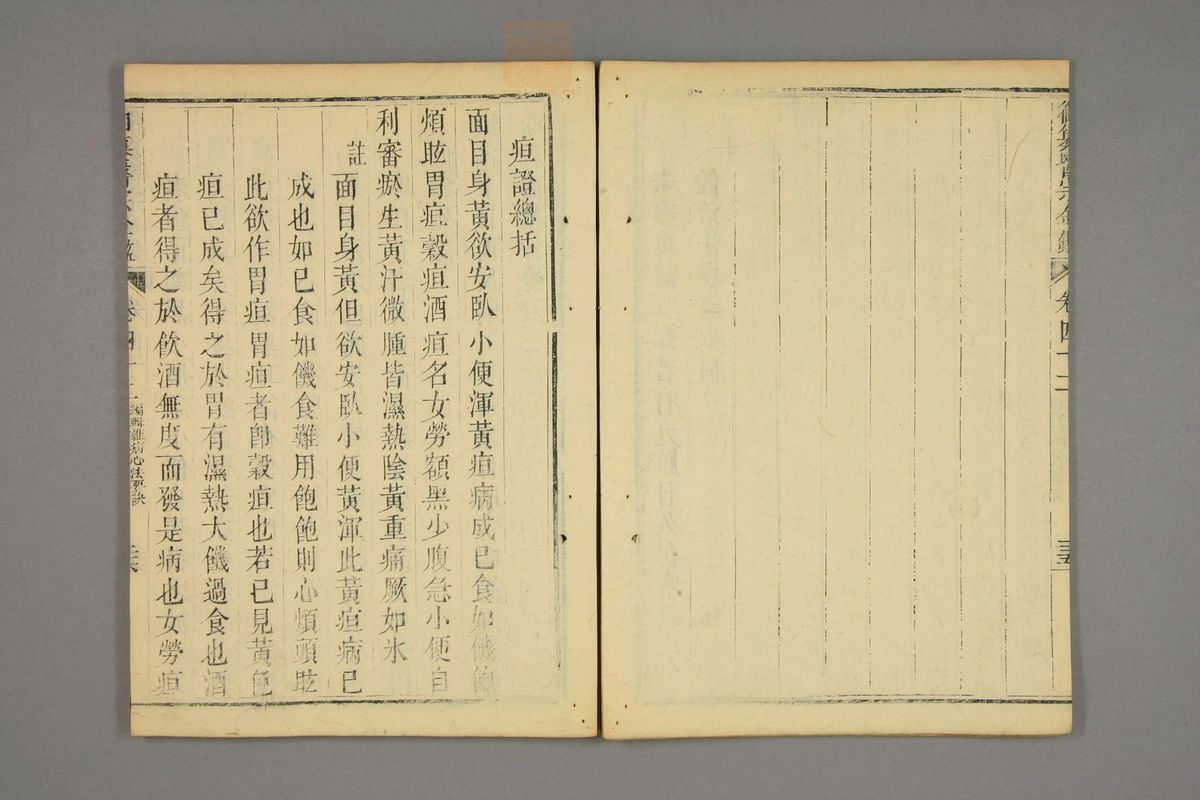 御纂醫宗金鑑 卷四十二 三五
疸證總括
面目身黃欲安臥小便渾黃疸病成已食如饑飽
煩眩胃疸穀疸酒疸名女勞額黑少腹急小便自
利審瘀生黃汗微腫皆濕熱陰黃重痛厥如氷
註面目身黃但欲安臥小便黃渾此黃疸病已
成也如已食如饑食難用飽飽則心煩頭眩
此欲作胃疸胃疸者卽穀疸也若已見黃色
疸已成矣得之於胃有濕熱大饑過食也酒
疸者得之於飲酒無度而發是病也女勞疸
卷四十二 編輯雜病心法要訣